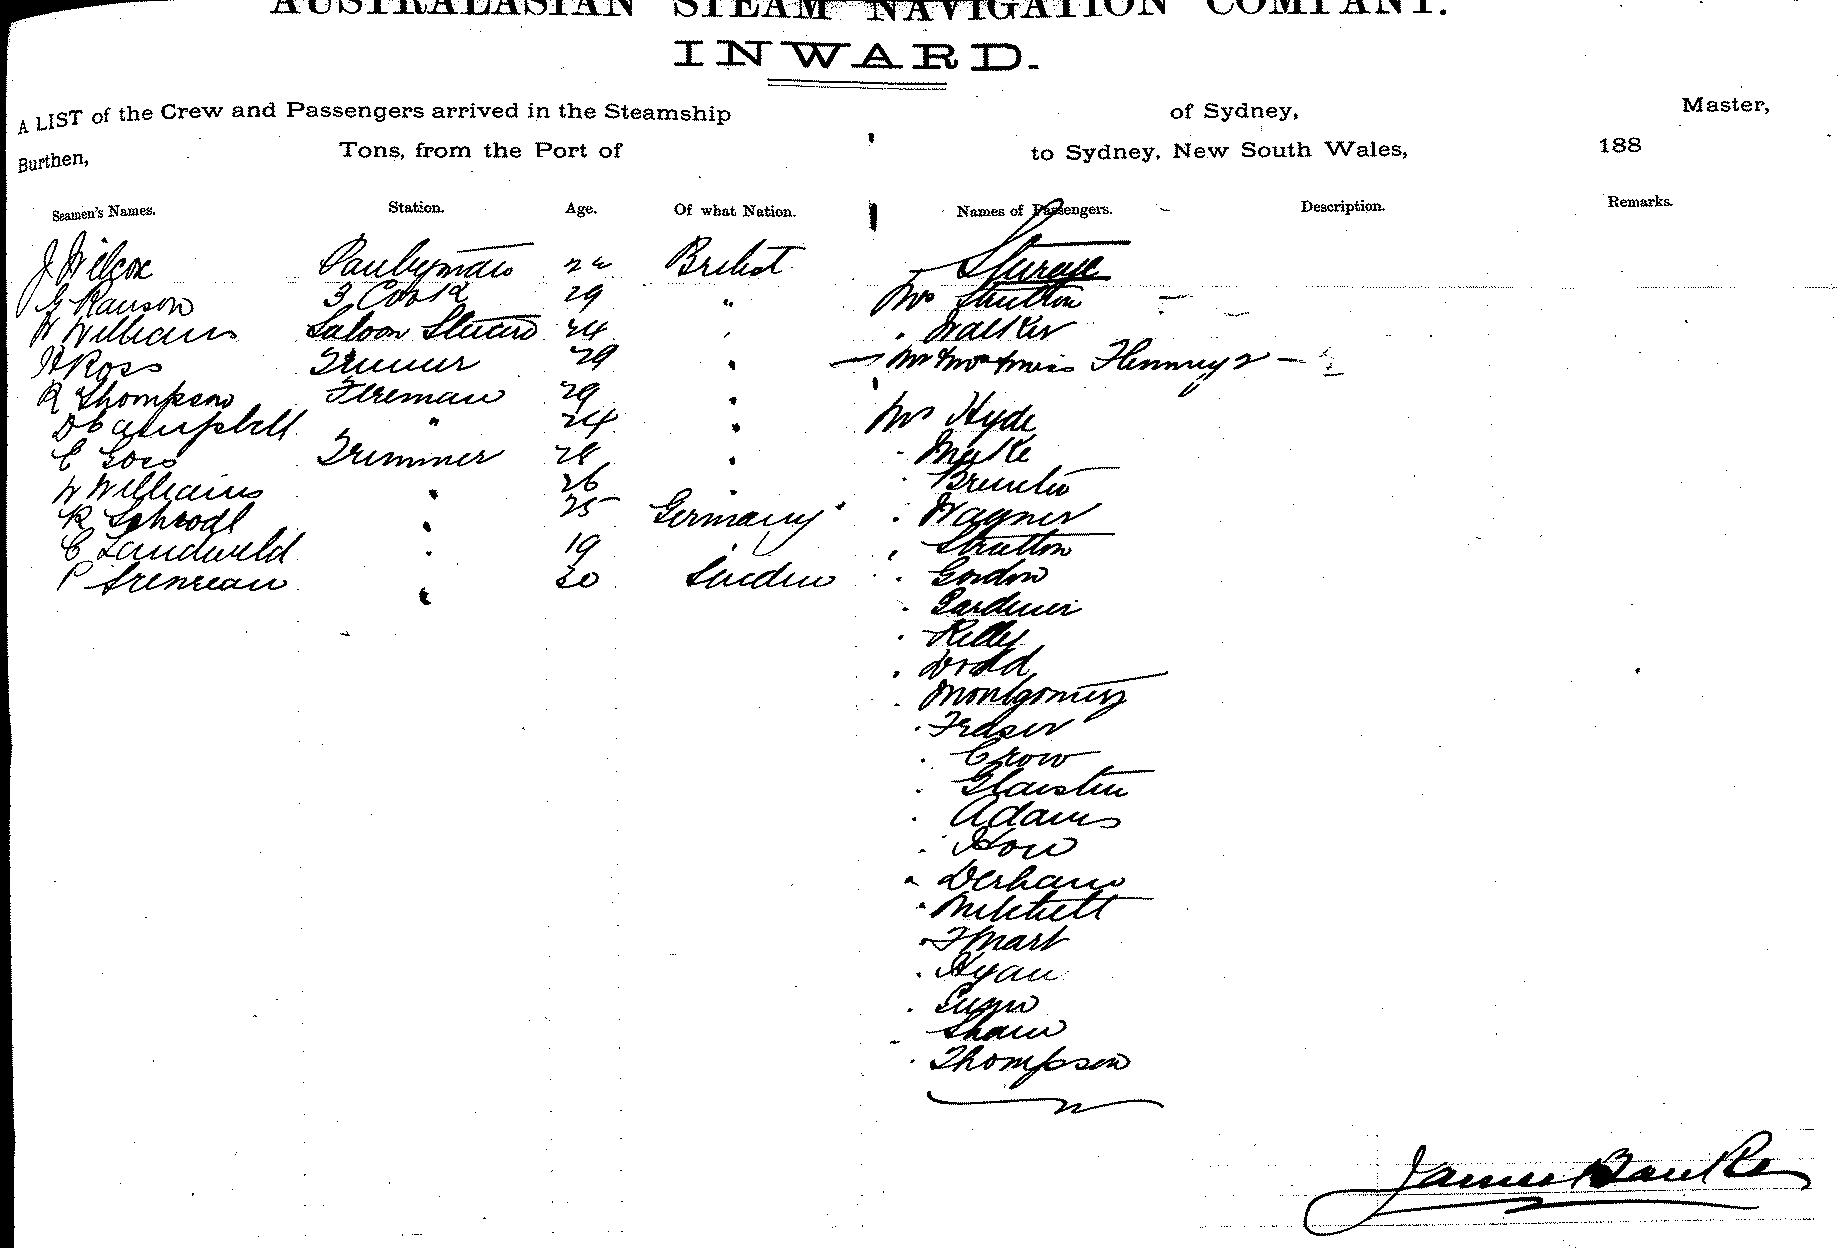 AUSTRALASIAN STEAM NAVIGATION COMPANY.
INWARD.
A LIST of the Crew and Passengers arrived in the Steamship of Sydney, Master,
Burthen, Tons, from the Port of to Sydney, New South Wales, 188
Seamen's Names. Station. Age. Of what Nation. Names of Passengers. Description. Remarks.
J Wilcox British Steerage
G Ranson 3 Cook 29 " Mr Strutton
W Williams Saloon Steward 24 Walker
H Ross Trimmer 29 Mr & Mrs & Miss
R Thompson Fireman 29
D Campbell " 24 Mr Hyde
C Goss Trimmer 28
W Williams 26
R Schrodl 25 Germany Wagner
C 19 Stratton
P 30 Sweden Gordon
Gardener
Kelly
Dodd
Montgomery
Fraser
Crow
Adams
How
Derham
Mitchell
Ryan
Shaw
Thompson
James Banks